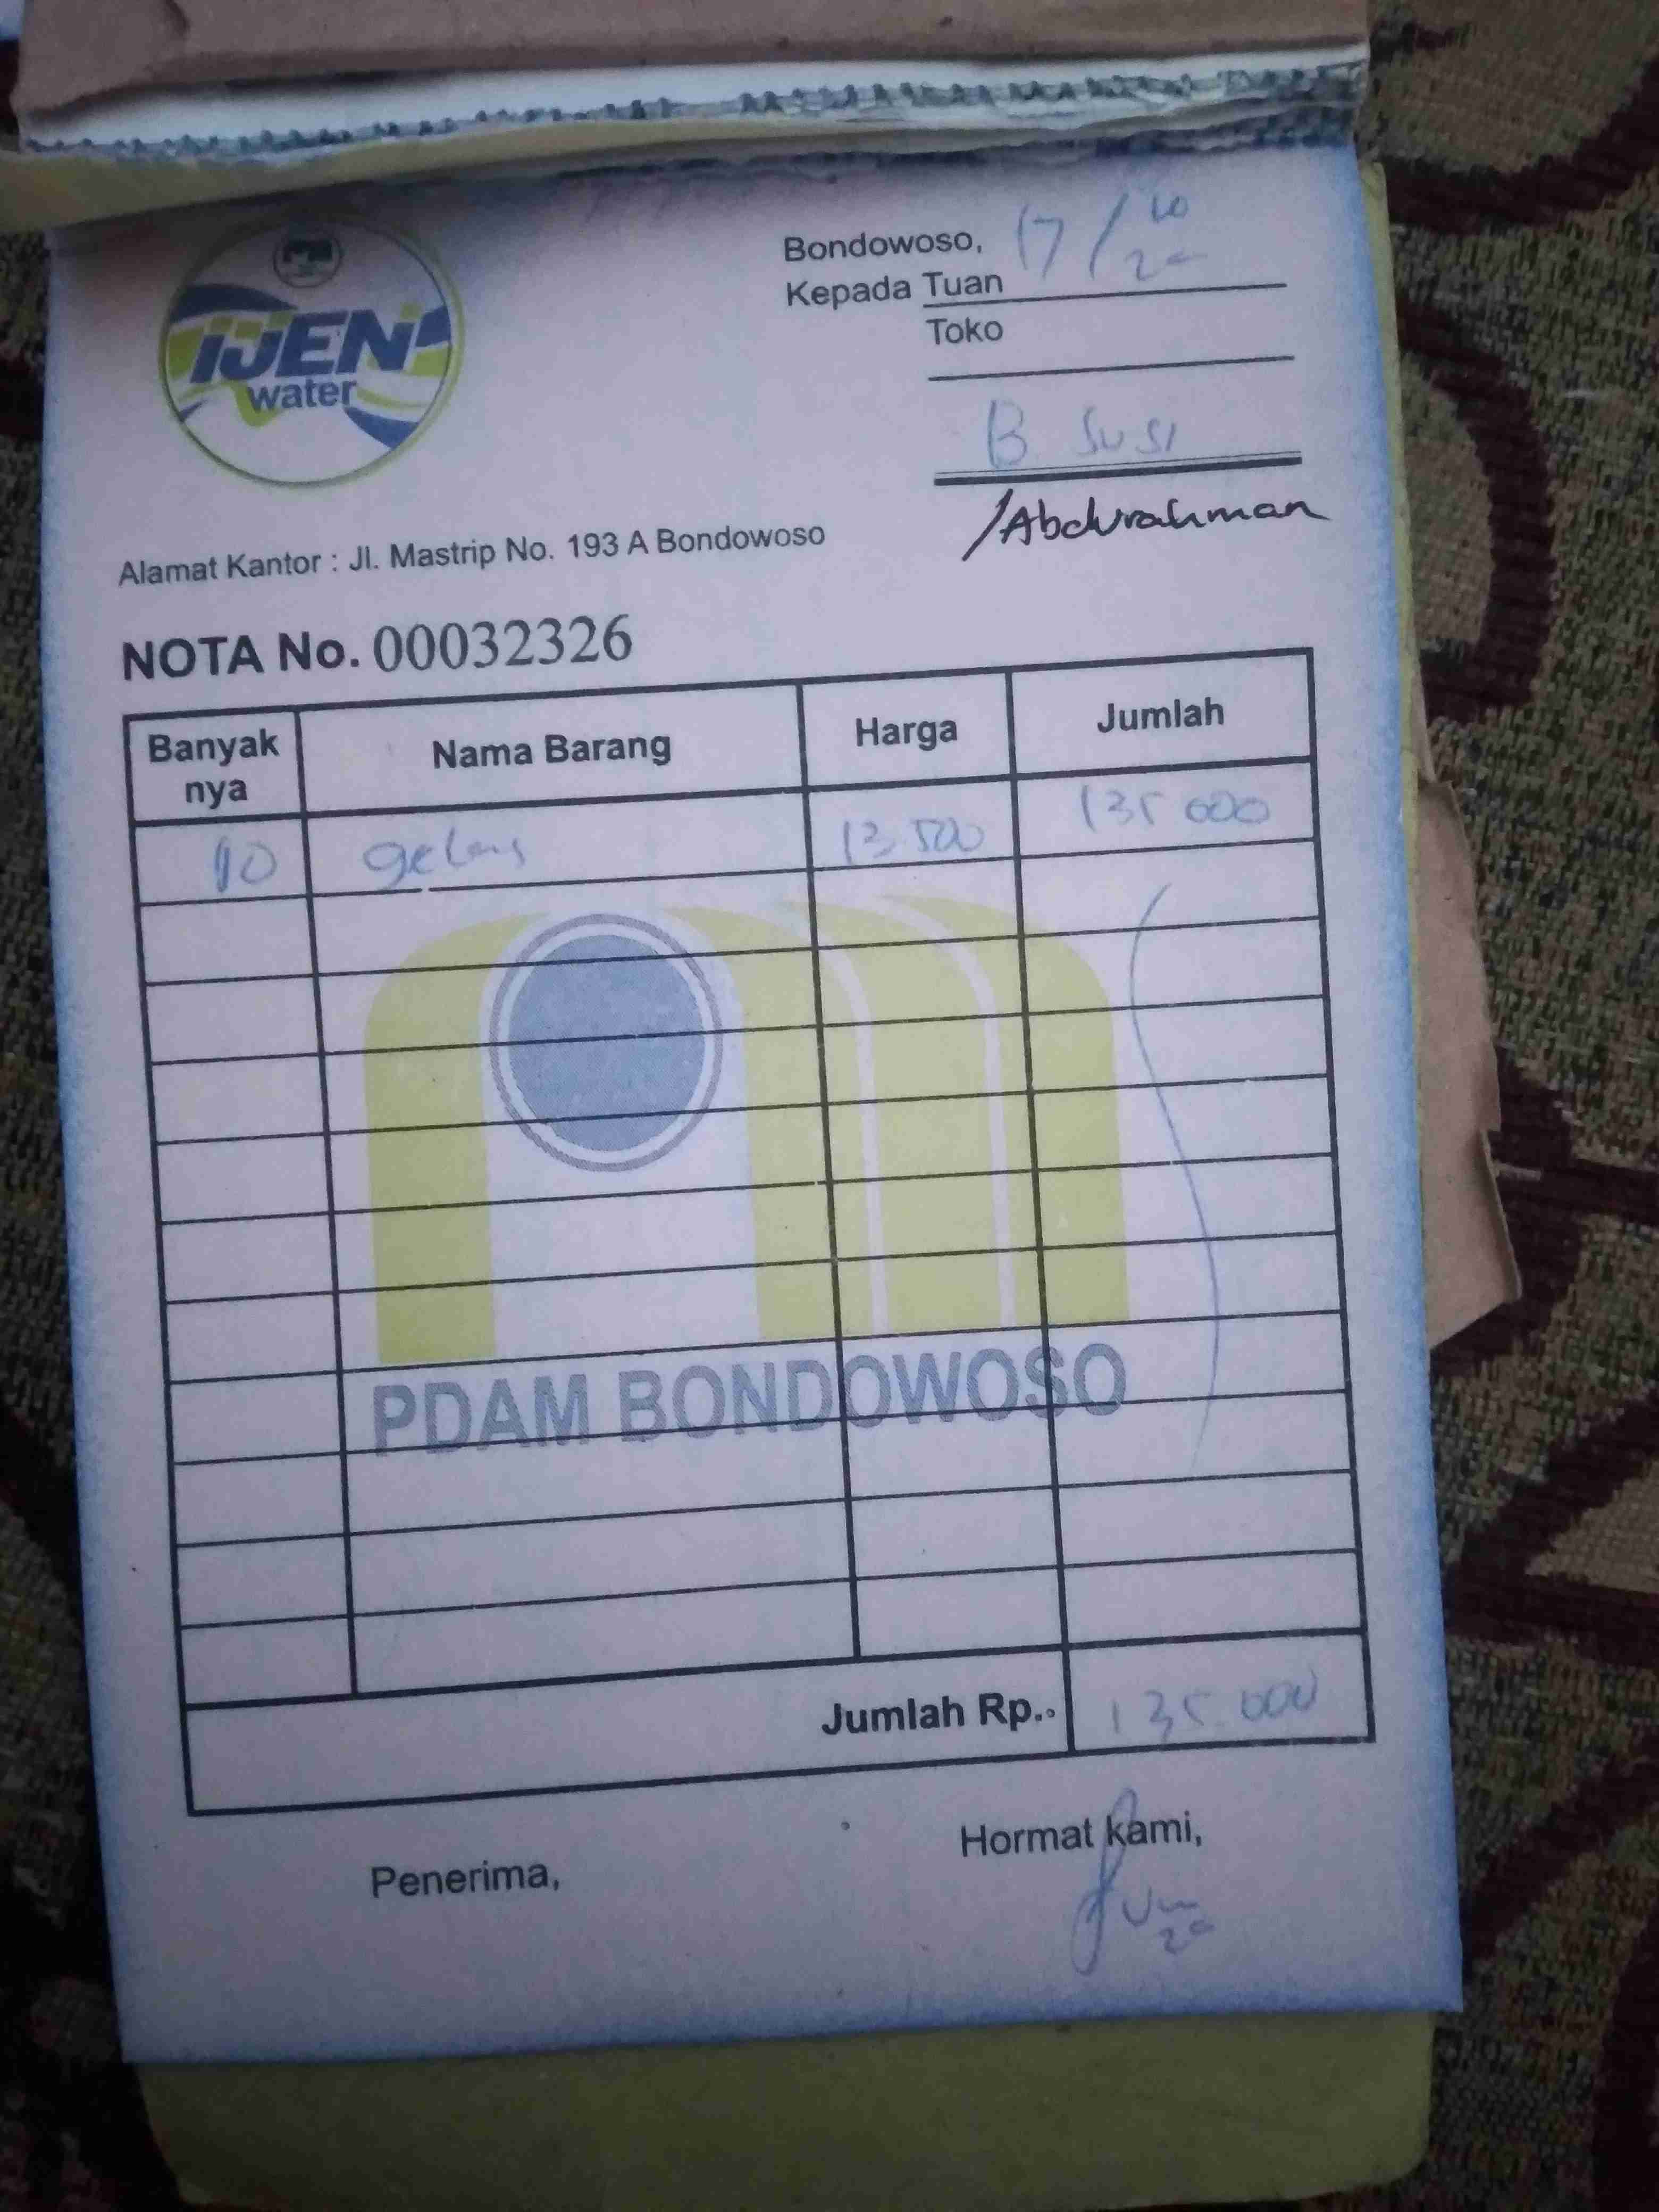 IJEN
water
Bondowoso, 17/10 20
Kepada Tuan
Toko
B SUSI
/Abdurahman
Alamat Kantor : Jl. Mastrip No. 193 A Bondowoso
NOTA No. 00032326
Banyak nya Nama Barang Harga Jumlah
10 gelas 13 500 135 000
PDAM BONDOWOSO
Jumlah Rp.. 135.000
Hormat kami,
Penerima,